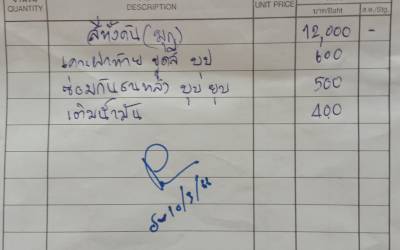 QUANTITY DESCRIPTION UNIT PRICE บาท/Baht ส.ต./Stg.
สีทั้งคัน (มุก) 12,000 -
เคาะฝาท้าย ขูดสี บุบ 600
ซ่อมกันชนหลัง บุบ ยุบ 500
เติมน้ำมัน 400
10/3/66